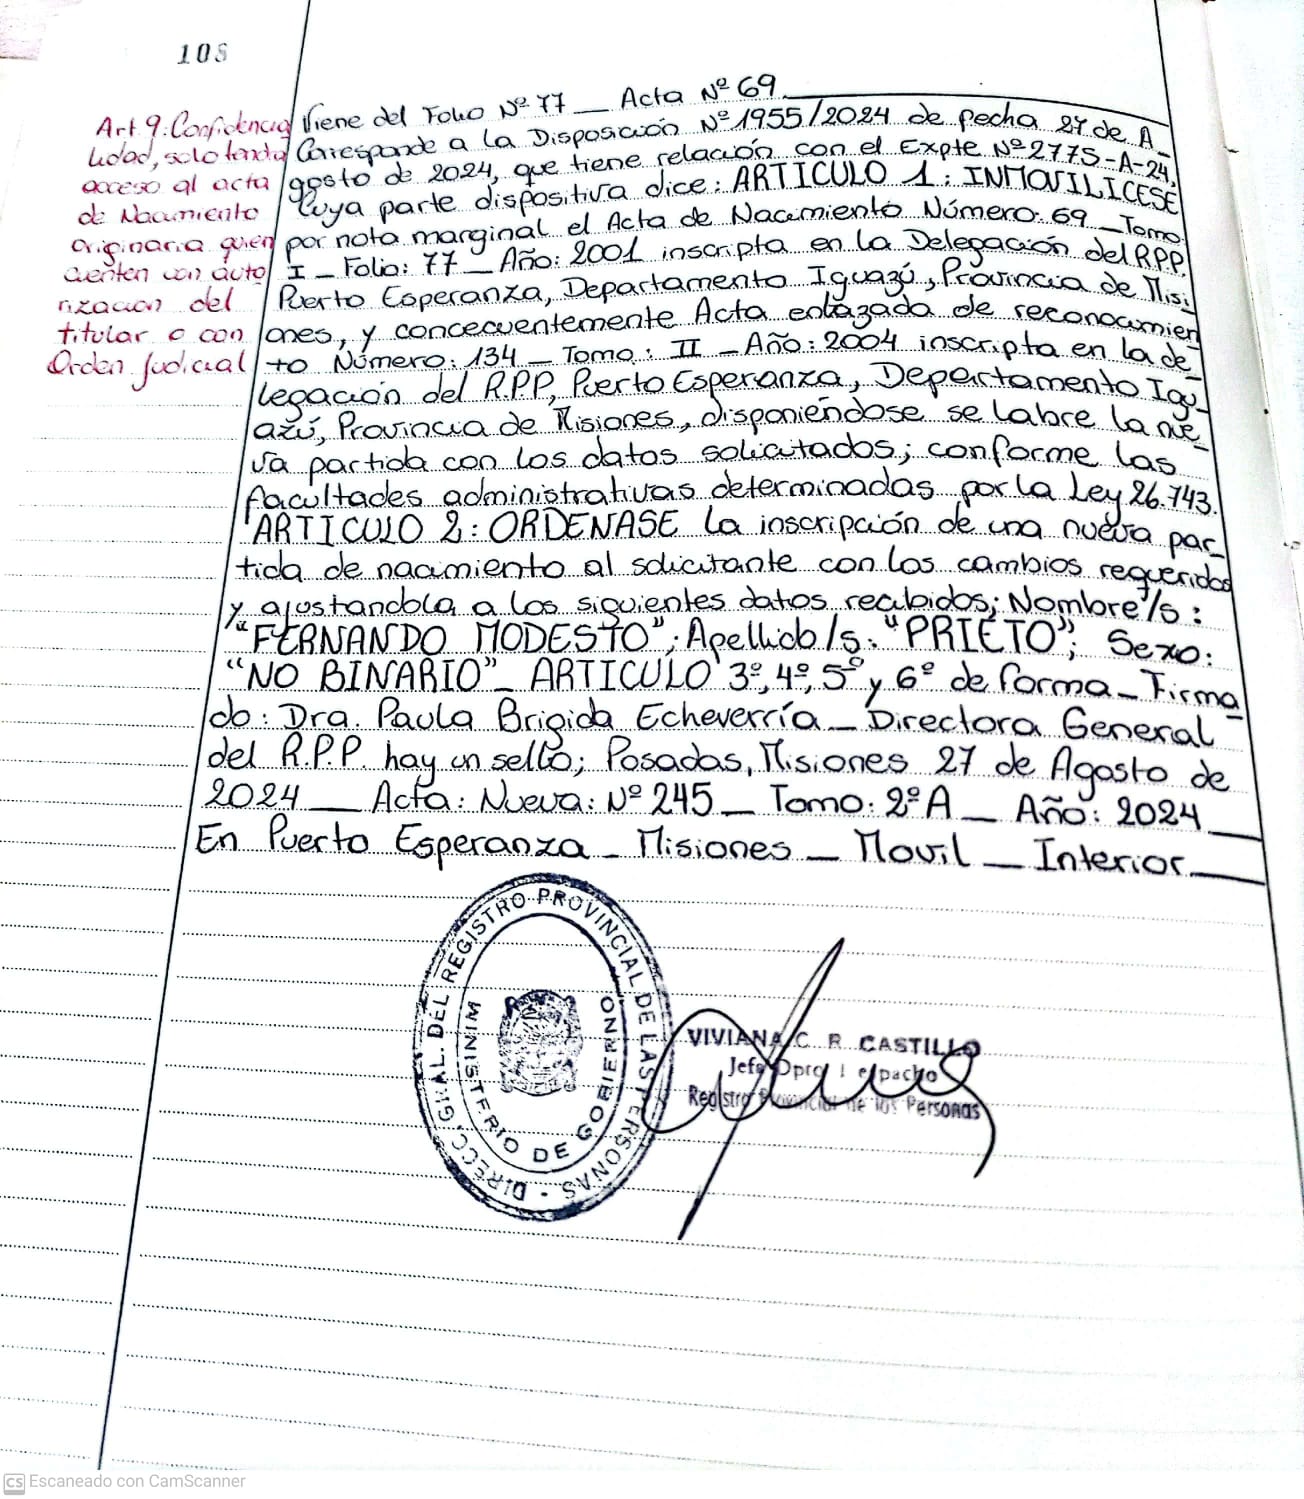 108
Art. 9: Confidencia
lidad, solo tendra
acceso al acta
de Nacimiento
originaria quien
cuenten con auto
rización del
titular o con
Orden Judicial
Viene del Folio Nº 77 _ Acta Nº 69
Corresponde a la Disposición Nº 1955/2024 de fecha 27 de A_
gosto de 2024, que tiene relación con el Expte Nº 2775-A-24,
Cuya parte dispositiva dice: ARTICULO 1: INMOVILICESE
por nota marginal el Acta de Nacimiento Número: 69 _ Tomo
I _ Folio: 77 _ Año: 2001 inscripta en la Delegación del R.P.P.
Puerto Esperanza, Departamento Iguazú, Provincia de Misi
ones, y concecuentemente Acta enlazada de reconocimien
to Número: 134 _ Tomo: II _ Año: 2004 inscripta en la de_
legación del R.P.P, Puerto Esperanza, Departamento Igu_
azú, Provincia de Misiones, disponiéndose se labre la nue_
va partida con los datos solicitados; conforme las
facultades administrativas determinadas por la Ley 26.743.
ARTICULO 2: ORDENASE la inscripción de una nueva par_
tida de nacimiento al solicitante con los cambios requeridos
y ajustandola a los siguientes datos recibidos; Nombre/s:
"FERNANDO MODESTO"; Apellido/s: "PRIETO"; Sexo:
"NO BINARIO" _ ARTICULO 3º, 4º, 5º y 6º de forma _ Firma_
do: Dra. Paula Brigida Echeverría _ Directora General
del R.P.P. hay un sello; Posadas, Misiones 27 de Agosto de
2024 _ Acta: Nueva: Nº 245 _ Tomo: 2º A _ Año: 2024
En Puerto Esperanza _ Misiones _ Movil _ Interior
DIRECC. GRAL. DEL REGISTRO PROVINCIAL DE LAS PERSONAS -
MINISTERIO DE GOBIERNO
VIVIANA C. R. CASTILLO
Jefe Dpto
Registro Provincial de las Personas
CS Escaneado con CamScanner